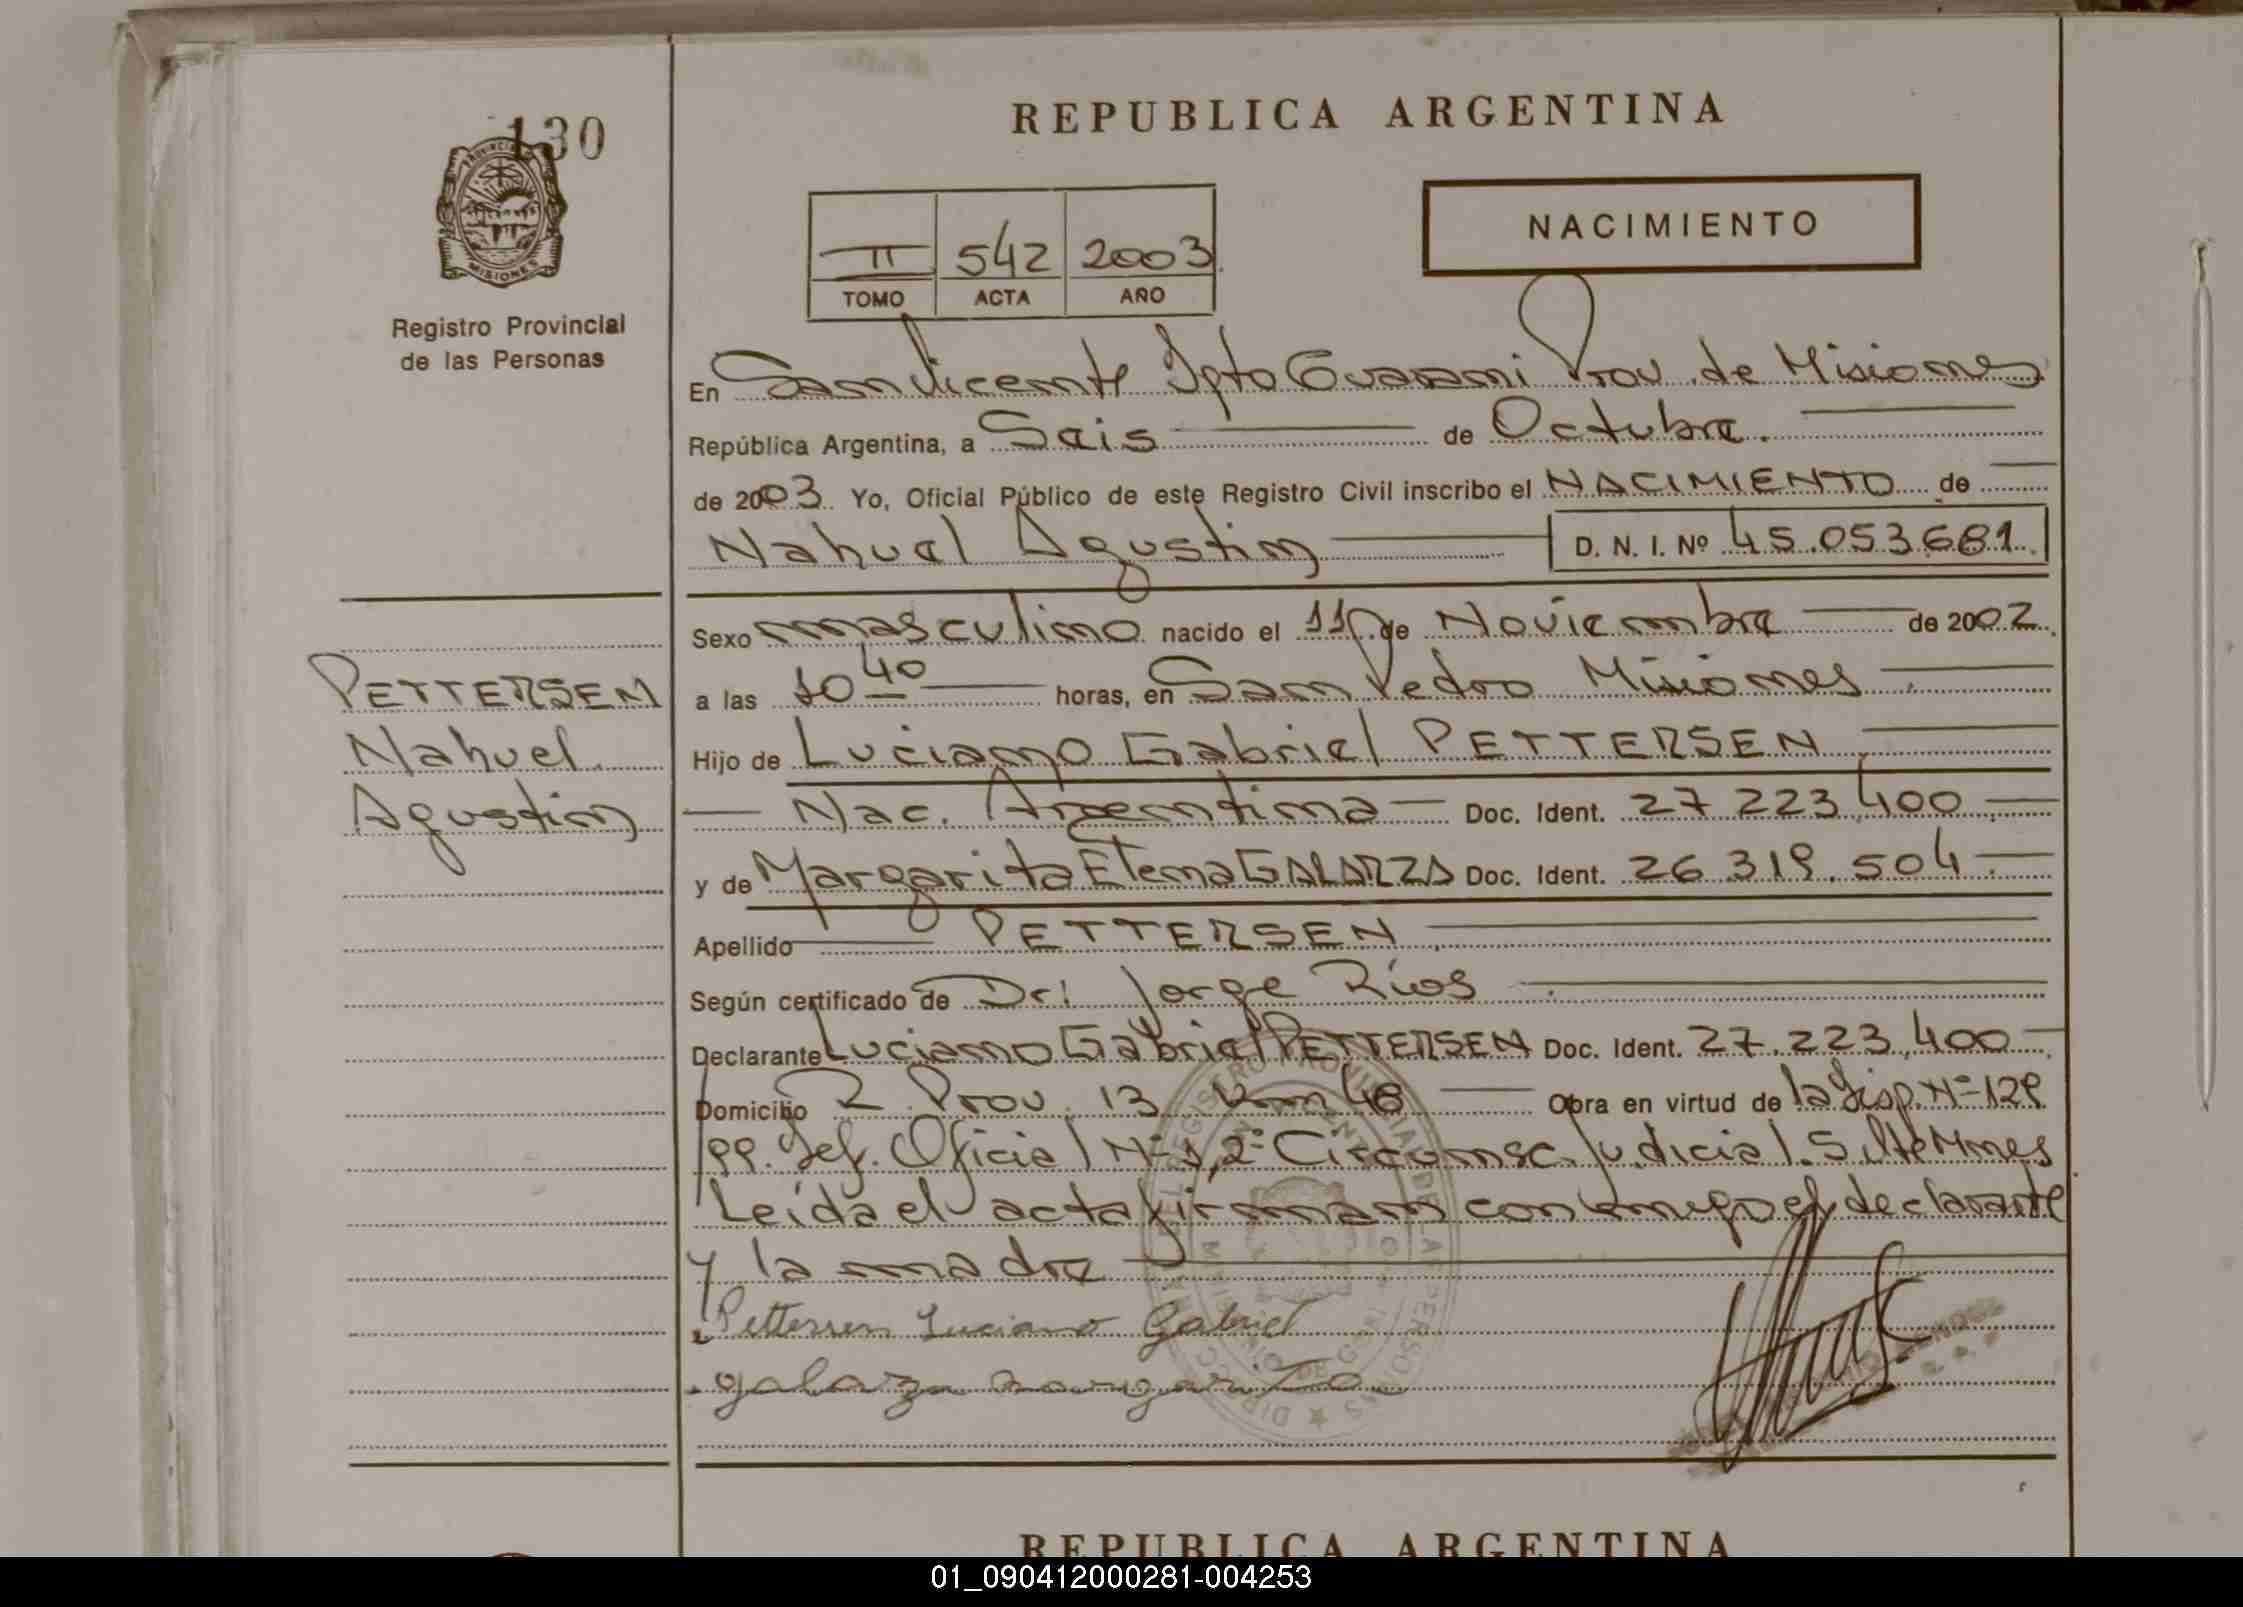 130
PROVINCIA
MISIONES
Registro Provincial
de las Personas
REPUBLICA ARGENTINA
NACIMIENTO
II 542 2003
TOMO ACTA AÑO
En San Vicente Dpto Guarani Prov. de Misiones
República Argentina, a Seis de Octubre.
de 2003. Yo, Oficial Público de este Registro Civil inscribo el NACIMIENTO de
Nahuel Agustin D. N. I. Nº 45.053.681.
Sexo masculino nacido el 11 de Noviembre de 2002.
a las 10 40 horas, en San Pedro Misiones.
Hijo de Luciano Gabriel PETTERSEN.
Nac. Argentina Doc. Ident. 27.223.400.
y de Margarita Elena GALARZA Doc. Ident. 26.319.504.
Apellido PETTERSEN.
Según certificado de Dr. Jorge Ríos.
Declarante Luciano Gabriel PETTERSEN Doc. Ident. 27.223.400.
Domicilio R. Prov. 13 Km 48 Obra en virtud de la Disp. Nº 129
Def. Oficial Nº 1, 2º Circunsc. Judicial. Mnes
Leída el acta firman conmigo el declarante
y la madre
Pettersen Luciano Gabriel
galarza margarita
PETTERSEN
Nahuel
Agustin
REPUBLICA ARGENTINA
01_090412000281-004253